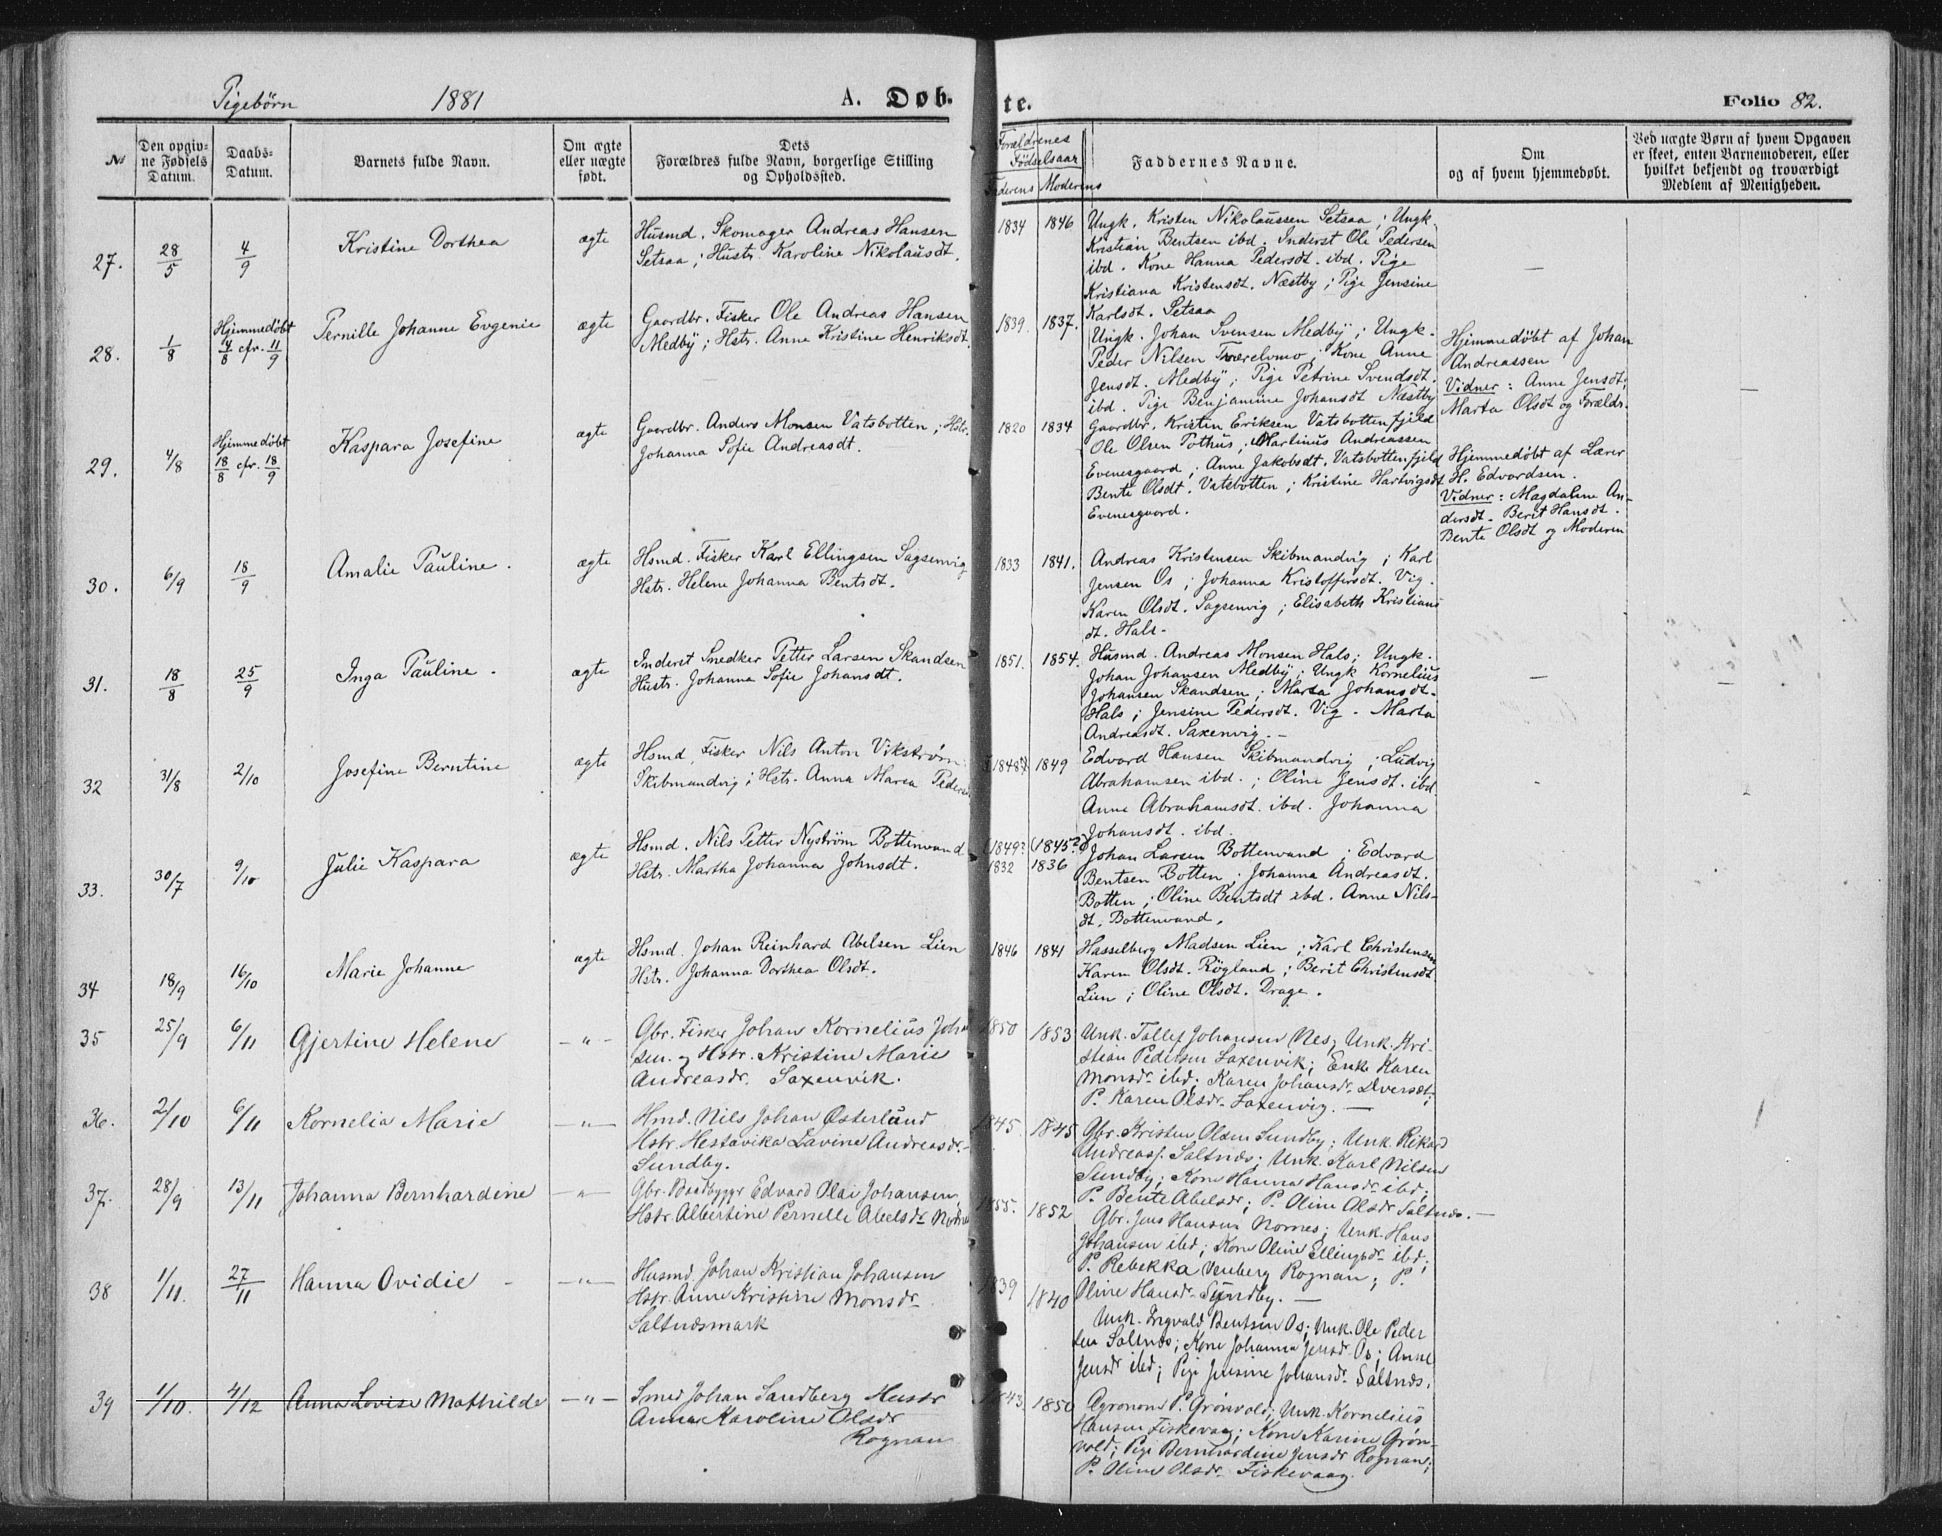 Pigebörn 1881 A. Døb- te. Folio 82.
No
Den opgiv-
ne Fødsels
Datum.
Daabs-
Datum.
Barnets fulde Navn.
Om ægte
eller uægte
født.
Dets
Forældres fulde Navn, borgerlige Stilling
og Opholdssted.
Forældrenes
Fødselsaar
Faderens Moderens
Faddernes Navne.
Om
og af hvem hjemmedøbt.
Ved uægte Børn af hvem Opgaven
er skeet, enten Barnemoderen, eller
hvilket bekjendt og troværdigt
Medlem af Menigheden.
27. 28/5 4/9 Kristine Dorthea ægte
Husmd. Skomager Andreas Hansen
Setsaa; Hustr. Karoline Nikolausdt.
1834 1846
Ungk. Kristen Nikolaussen Setsaa; Ungk.
Kristian Bentsen ibd. Inderst Ole Pedersen
ibd. Kone Hanna Pedersdt. ibd. Pige
Kristiana Kristensdt. Næstby; Pige Jensine
Karlsdt. Setsaa
28. 1/8 Hjemmedøbt
4/8 cfr. 11/9
Pernille Johanne Evgenie ægte
Gaardbr. Fisker Ole Andreas Hansen
Medby; Hstr. Anne Kristine Henriksdt.
1839. 1837.
Ungk. Johan Svensen Medby; Ungk.
Peder Nilsen Tverelvmo; Kone Anne
Jensdt. Medby; Pige Petrine Svendsdt.
ibd. Pige Benjamine Johansdt Næstby
Hjemmedøbt af Johan
Andreassen
Vidner: Anne Jensdt;
Marta Olsdt og Forældr.
29. 4/8 Hjemmedøbt
18/8 cfr. 18/9
Kaspara Josefine ægte
Gaardbr. Anders Monsen Vatsbotten; Hstr.
Johanna Sofie Andreasdt.
1820 1834
Gaardbr. Kristen Eriksen Vatsbottenfjeld
Ole Olsen Tothus; Martinus Andreassen
Evenesgaard; Anne Jakobsdt. Vatsbottenfjeld
Bente Olsdt. Vatsbotten; Kristine Hartvigsdt
Evenesgaard.
Hjemmedøbt af Lærer
H. Edvardsen.
Vidner: Magdalene An-
dersdt. Berit Hansdt.
Bente Olsdt og Moderen
30. 6/9 18/9 Amalie Pauline. ægte
Hsmd. Fisker Karl Ellingsen Sagsenvig
Hstr. Helene Johanna Bentsdt.
1833 1841.
Andreas Kristensen Skibmandvig; Karl
Jensen Os; Johanna Kristoffersdt. Vig.
Karen Olsdt. Sagsenvig; Elisabeth Kristians
dt. Hals.
31. 18/8 25/9 Inga Pauline. ægte
Inderst Snedker Petter Larsen Skandsen
Hustr. Johanna Sofie Johansdt.
1851. 1854.
Husmd. Andreas Monsen Hals; Ungk.
Johan Johansen Medby; Ungk Kornelius
Johansen Skandsen; Marta Johansdt.
Hals; Jensine Pedersdt. Vig. Marta
Andreasdt. Saxenvig.
32 31/8 2/10 Josefine Berntine ægte
Hsmd, Fisker Nils Anton Vikstrøm
Skibmandvig; Hstr. Anna Marea Peders
1848? 1849
Edvard Hansen Skibmandvig; Ludvig
Abrahamsen ibd.; Oline Jensdt. ibd
Anne Abrahamsdt. ibd. Johanna
Johansdt. ibd.
33. 30/7 9/10 Julie Kaspara ægte
Hsmd. Nils Petter Nyström Bottenvand
Hstr. Martha Johanna Johnsdt.
(1849? (1845?)
1832 1836
Johan Larsen Bottenvand; Edvard
Bentsen Botten; Johanna Andreasdt.
Botten; Oline Bentsdt ibd. Anne Nils-
dt. Bottenvand.
34 18/9 16/10 Marie Johanne ægte
Hsmd. Johan Reinhard Abelsen Lien
Hstr. Johanna Dorthea Olsdt.
1846 1841
Hasselberg Madsen Lien; Karl Christensen
Karen Olsdt. Røgland; Berit Christensdt
Lien; Oline Olsdt. Drage.
35 25/9 6/11 Gjertine Helene —"—
Gbr. Fisker Johan Kornelius Joha
sen. og Hstr. Kristine Marie
Andreasdr. Saxenvik.
1850 1853
Unk. Tollef Johansen Nes; Unk. Kri-
stian Pedersen Saxenvik; Enke Karen
Monsdr ibd; Karen Johansdr. Dverset;
P. Karen Olsdr. Saxenvig. —
36. 2/10 6/11 Kornelia Marie —"—
Hmd. Nils Johan Østerlund
Hstr. Hestavika Lavine Andreasdr.
Sundby.
1845. 1845
Gbr. Kristen Olsen Sundby; Unk. Rikard
Andreass. Saltnæs; Unk. Karl Nilsen
Sundby; Kone Hanna Hansdr. ibd;
P. Bente Abelsdr; P. Oline Olsdr Saltnæs. —
37. 28/9 13/11 Johanna Bernhardine —"—
Gbr. Baadbyggr Edvard Olai Johansen,
Hstr Albertine Pernelle Abelsdr Nornes
1855. 1852
Gbr. Jens Hansen Nornes; Unk. Hans
Johansen ibd; Kone Oline Ellingsdr ibd;
P. Rebekka Venberg Rognan; P.
Oline Hansdr Sundby. —
38 1/11. 27/11 Hanna Ovidie —"—
Husmd. Johan Kristian Johansen
Hstr. Anne Kristine Monsdr
Saltnæsmark
1839 1840
Unk. Ingvald Bentsen Os; Unk. Ole Peder
sen Saltnæs; Kone Johanna Jensdr Os; Anne
Jensdr ibd; Pige Jensine Johansdr Saltnæs.
39 1/10. 4/12 Anna Lovise Mathilde —"—
Smed Johan Sandberg Hustr
Anna Karoline Olsdr
Rognan
1843. 1850
Agronom P. Grönvold; Unk. Kornelius
Hansen Fiskevaag; Kone Karine Grön-
vold; Pige Bernhardine Jensdr Rognan;
P. Oline Olsdr. Fiskevaag.